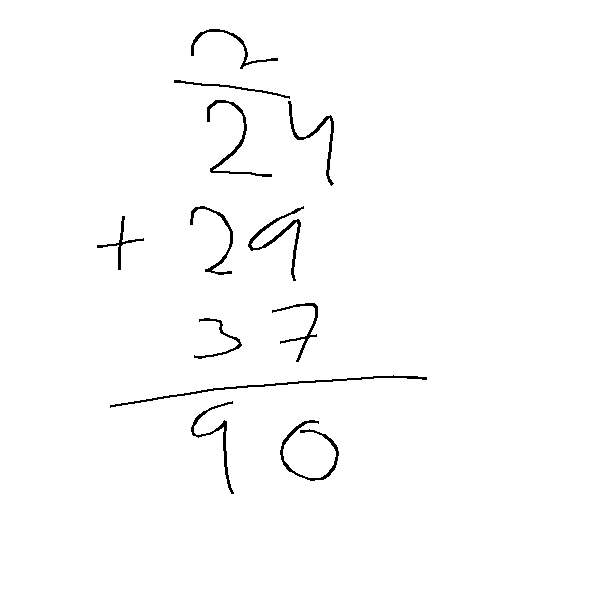 2
24
+ 29
37
90